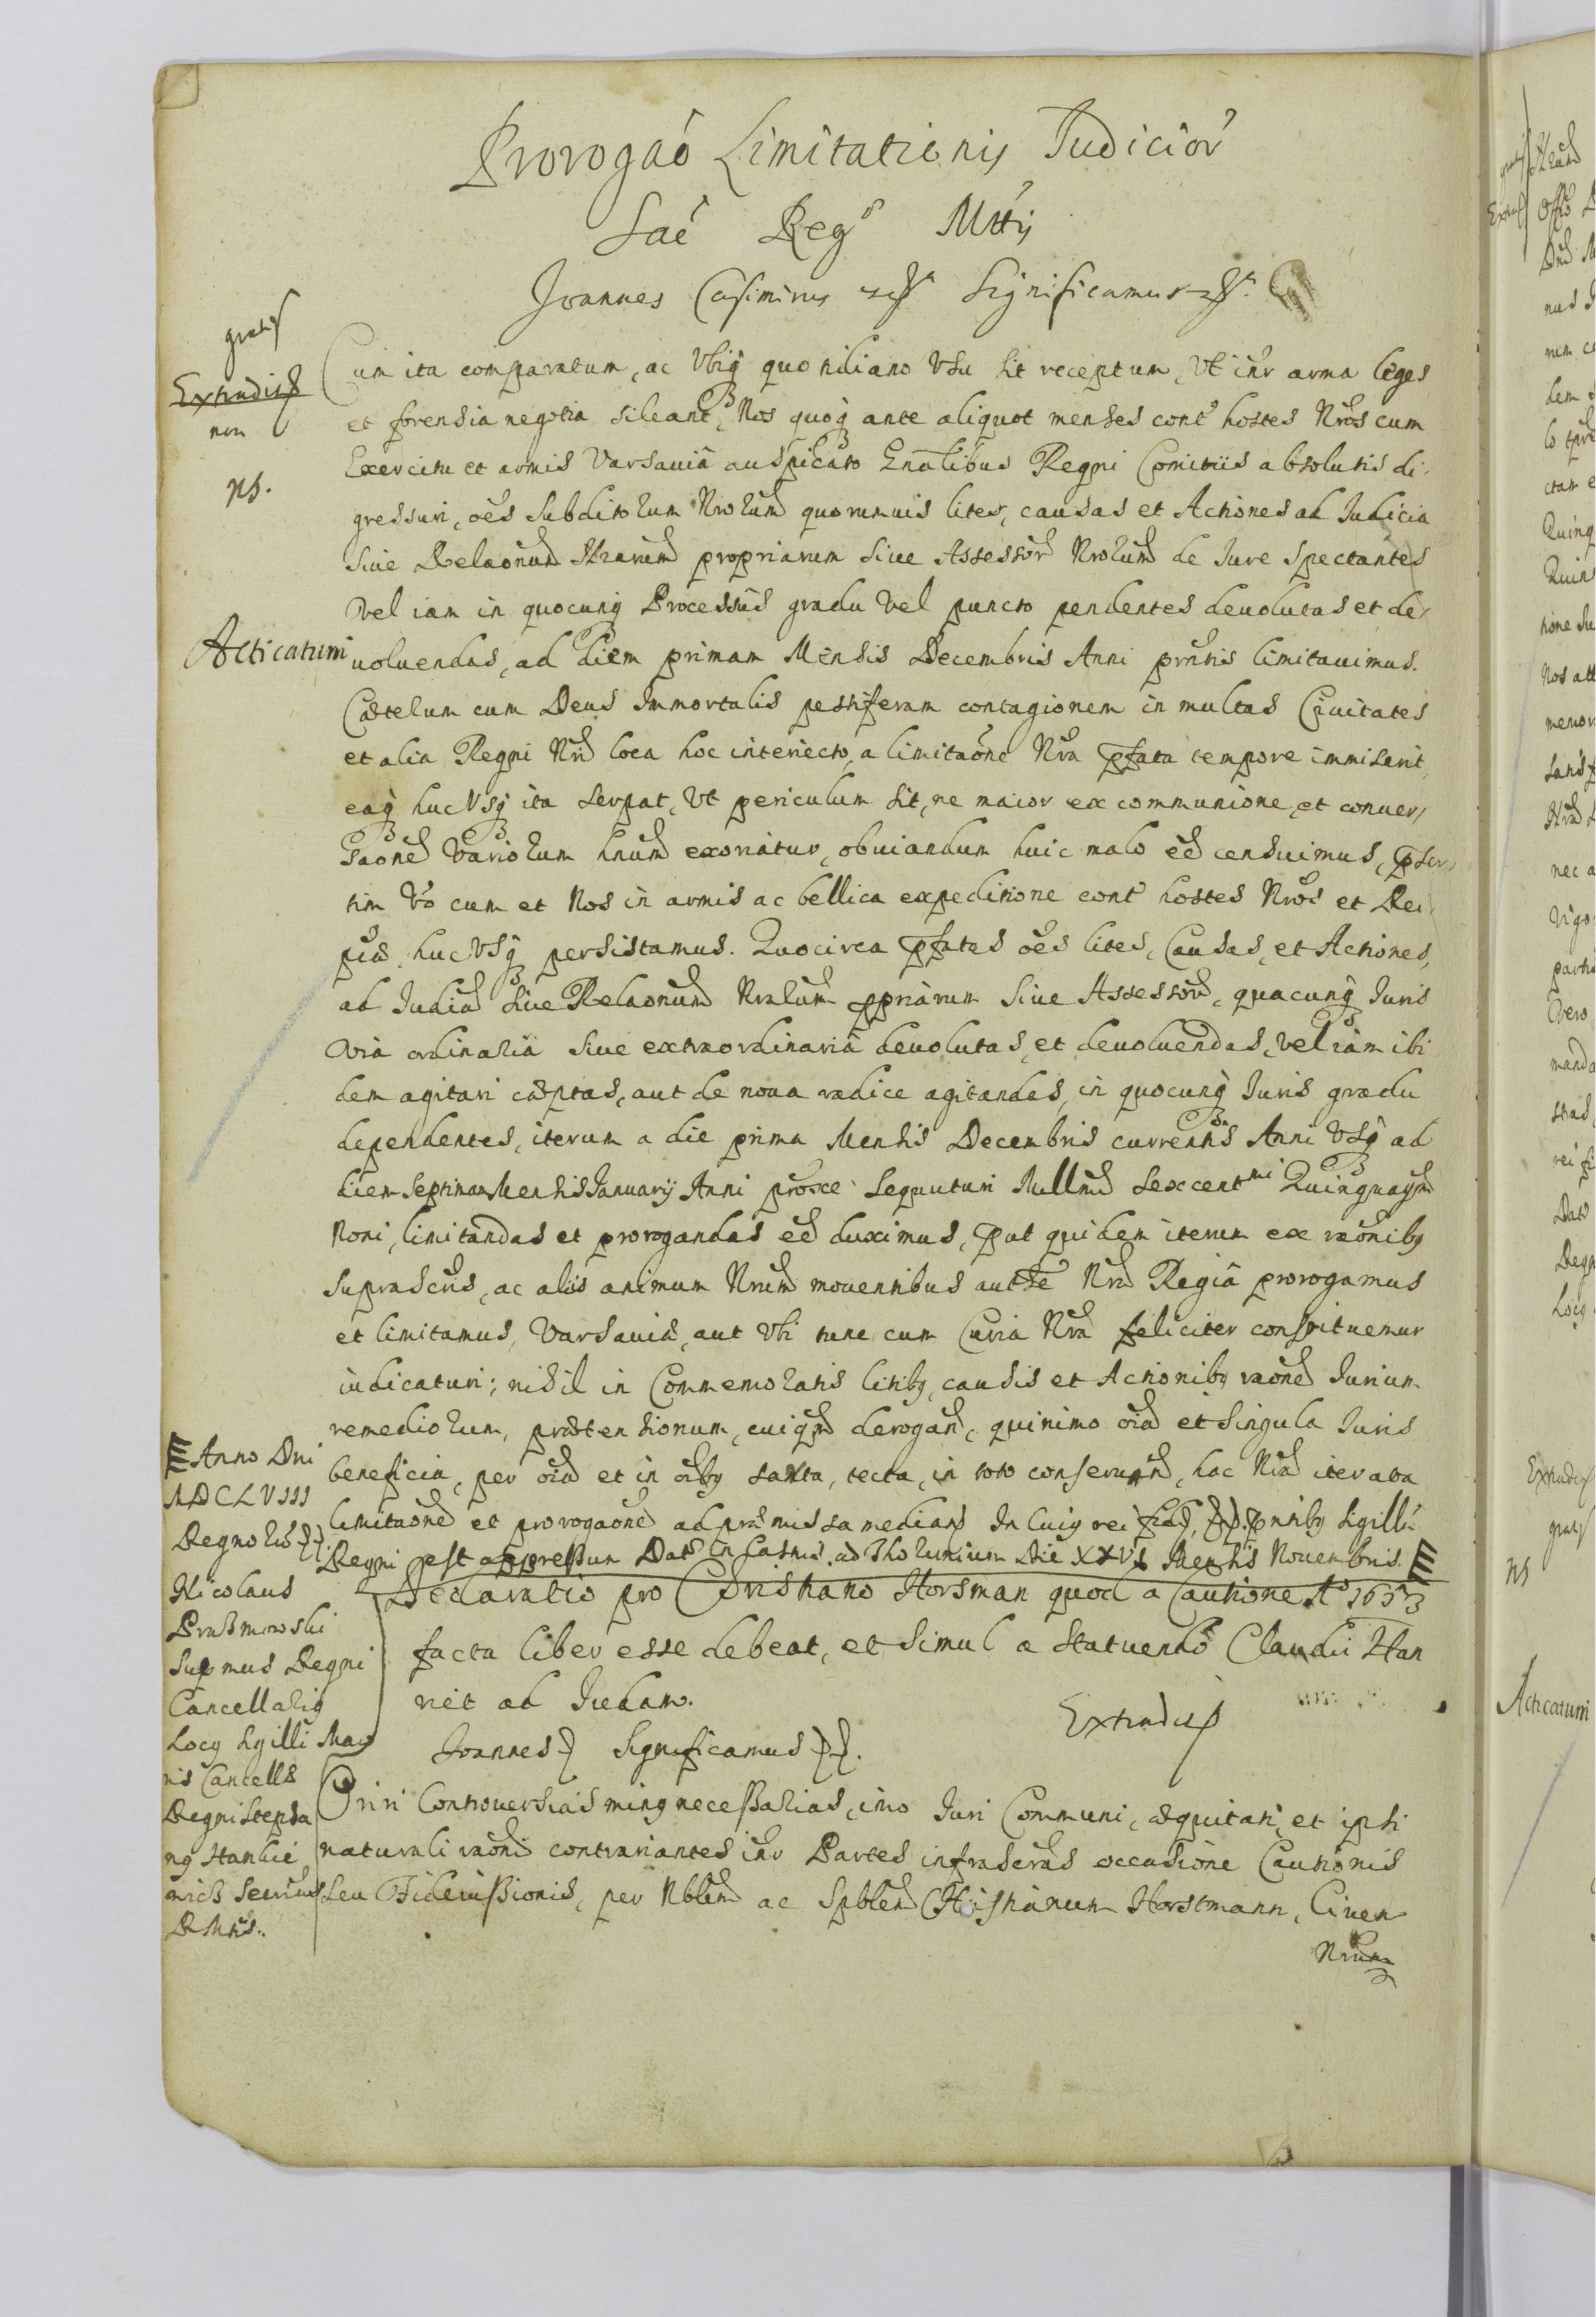 Prorogaõ Limitationis Judiciор̃
Sac̃ Reg̃ Mttis
Joannes Casimirus etc Significamus etc.
gratis
Extradidit
non
NB.
Cum ita comparatum, ac Vbiq quotidiano Vsu sit receptum, Vt inr arma leges
et forensia negotia sileant, Nos quoq ante aliquot menses cont hostes Nros cum
Exercitu et armis Varsauiâ auspicato Gnalibus Regni Comitiis absolutis di-
gressuri, oẽs Subditorum Nrorum quorumuis lites, causas et Actiones ad Judicia
Siue Relaonum Nrarum propriarum siue Assessor Nrorum de Jure Spectantes
Vel iam in quocunq Processus gradu Vel puncto pendentes deuolutas et de-
Acticatum
uoluendas, ad diem primam Mensis Decembris Anni prntis limitauimus.
Cæterum cum Deus Immortalis pestiferam contagionem in multas Ciuitates
et alia Regni Nri loca hoc interiecto, a limitaõne Nra pfata tempore immiserit,
eaq huc Vsq ita serpat, Vt periculum sit, ne maior ex communione, et conuer-
saone Variorum hnum exoriatur, obuiandum huic malo eẽ censuimus, pser-
tim Vo cum et Nos in armis ac bellica expeditione cont hostes Nros et Rei
pcæ huc Vsq persistamus. Quocirca pfatas oẽs lites, Causas, et Actiones,
ad Judicia siue Relaonum Nrarum ppriarum siue Assessor, quacunq Juris
via ordinariâ siue extraordinariâ deuolutas, et deuoluendas, vel iam ibi
dem agitari cæptas, aut de noua radice agitandas, in quocunq Juris gradu
dependentes, iterum a die prima Mensis Decembris currentis Anni Vsq ad
diem Septimam Mensis Januarij Anni proxe sequuturi Millmi sexcent mi Quinquagmi
Noni, limitandas et prorogandas eẽ duximus, put quidem iterum ex raonibq
suprascris, ac aliis animum Nrum mouentibus autte Nra Regiâ prorogamus
et limitamus, Varsauiæ, aut Vbi tunc cum Curia Nra feliciter constituemur
iudicaturi; nihil in Commemoratis litibq, causis et Actionibq raone Jurium
remediorum, prætensionum, cuiqm derogan, quinimo oia et singula Juris
beneficia, per oia et in oibq sarta, tecta, in toto conseruan, hac Nra iterata
limitaone et prorogaone ad præmissa median In Cuiq rei fidẽ, etc. pntibq Sigillũ
Regni est appressum Dat In Castris ad Thorunium Die XXVI Mensis Nouembris.
Anno Dni
MDCLVIII
Regnorũ etc.
Nicolaus
Prażmowski
Supmus Regni
Cancellariq
Locq Sigilli Maio
ris Cancells
Regni Stepha
nq Hankie
wicz Secrius
RMtis.
Declaratio pro Christiano Horsman quod a Cautione Ao 1653
facta liber esse debeat, et simul a statuendo Claudii Han
net ad Judam.
Extradidit
Joannes etc Significamus etc.
Oriri Controuersias minq necessarias, imo Juri Communi, æquitati, et ipsi
naturali raoni contrariantes inr Partes infrascras occasione Cautionis
seu Fideiussionis, per Nblem ac Spblem Christianum Horstmann, Ciuem
Nrum